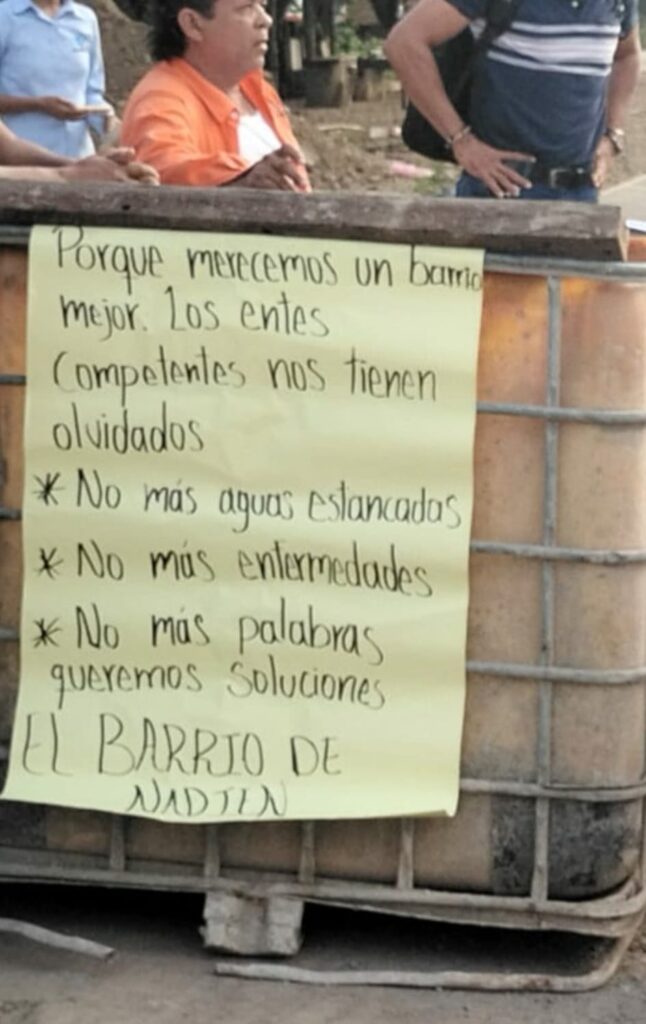 Porque merecemos un barrio
mejor. Los entes
Competentes nos tienen
olvidados
* No más aguas estancadas
* No más enfermedades
* No más palabras
queremos soluciones
EL BARRIO DE
NADIEN